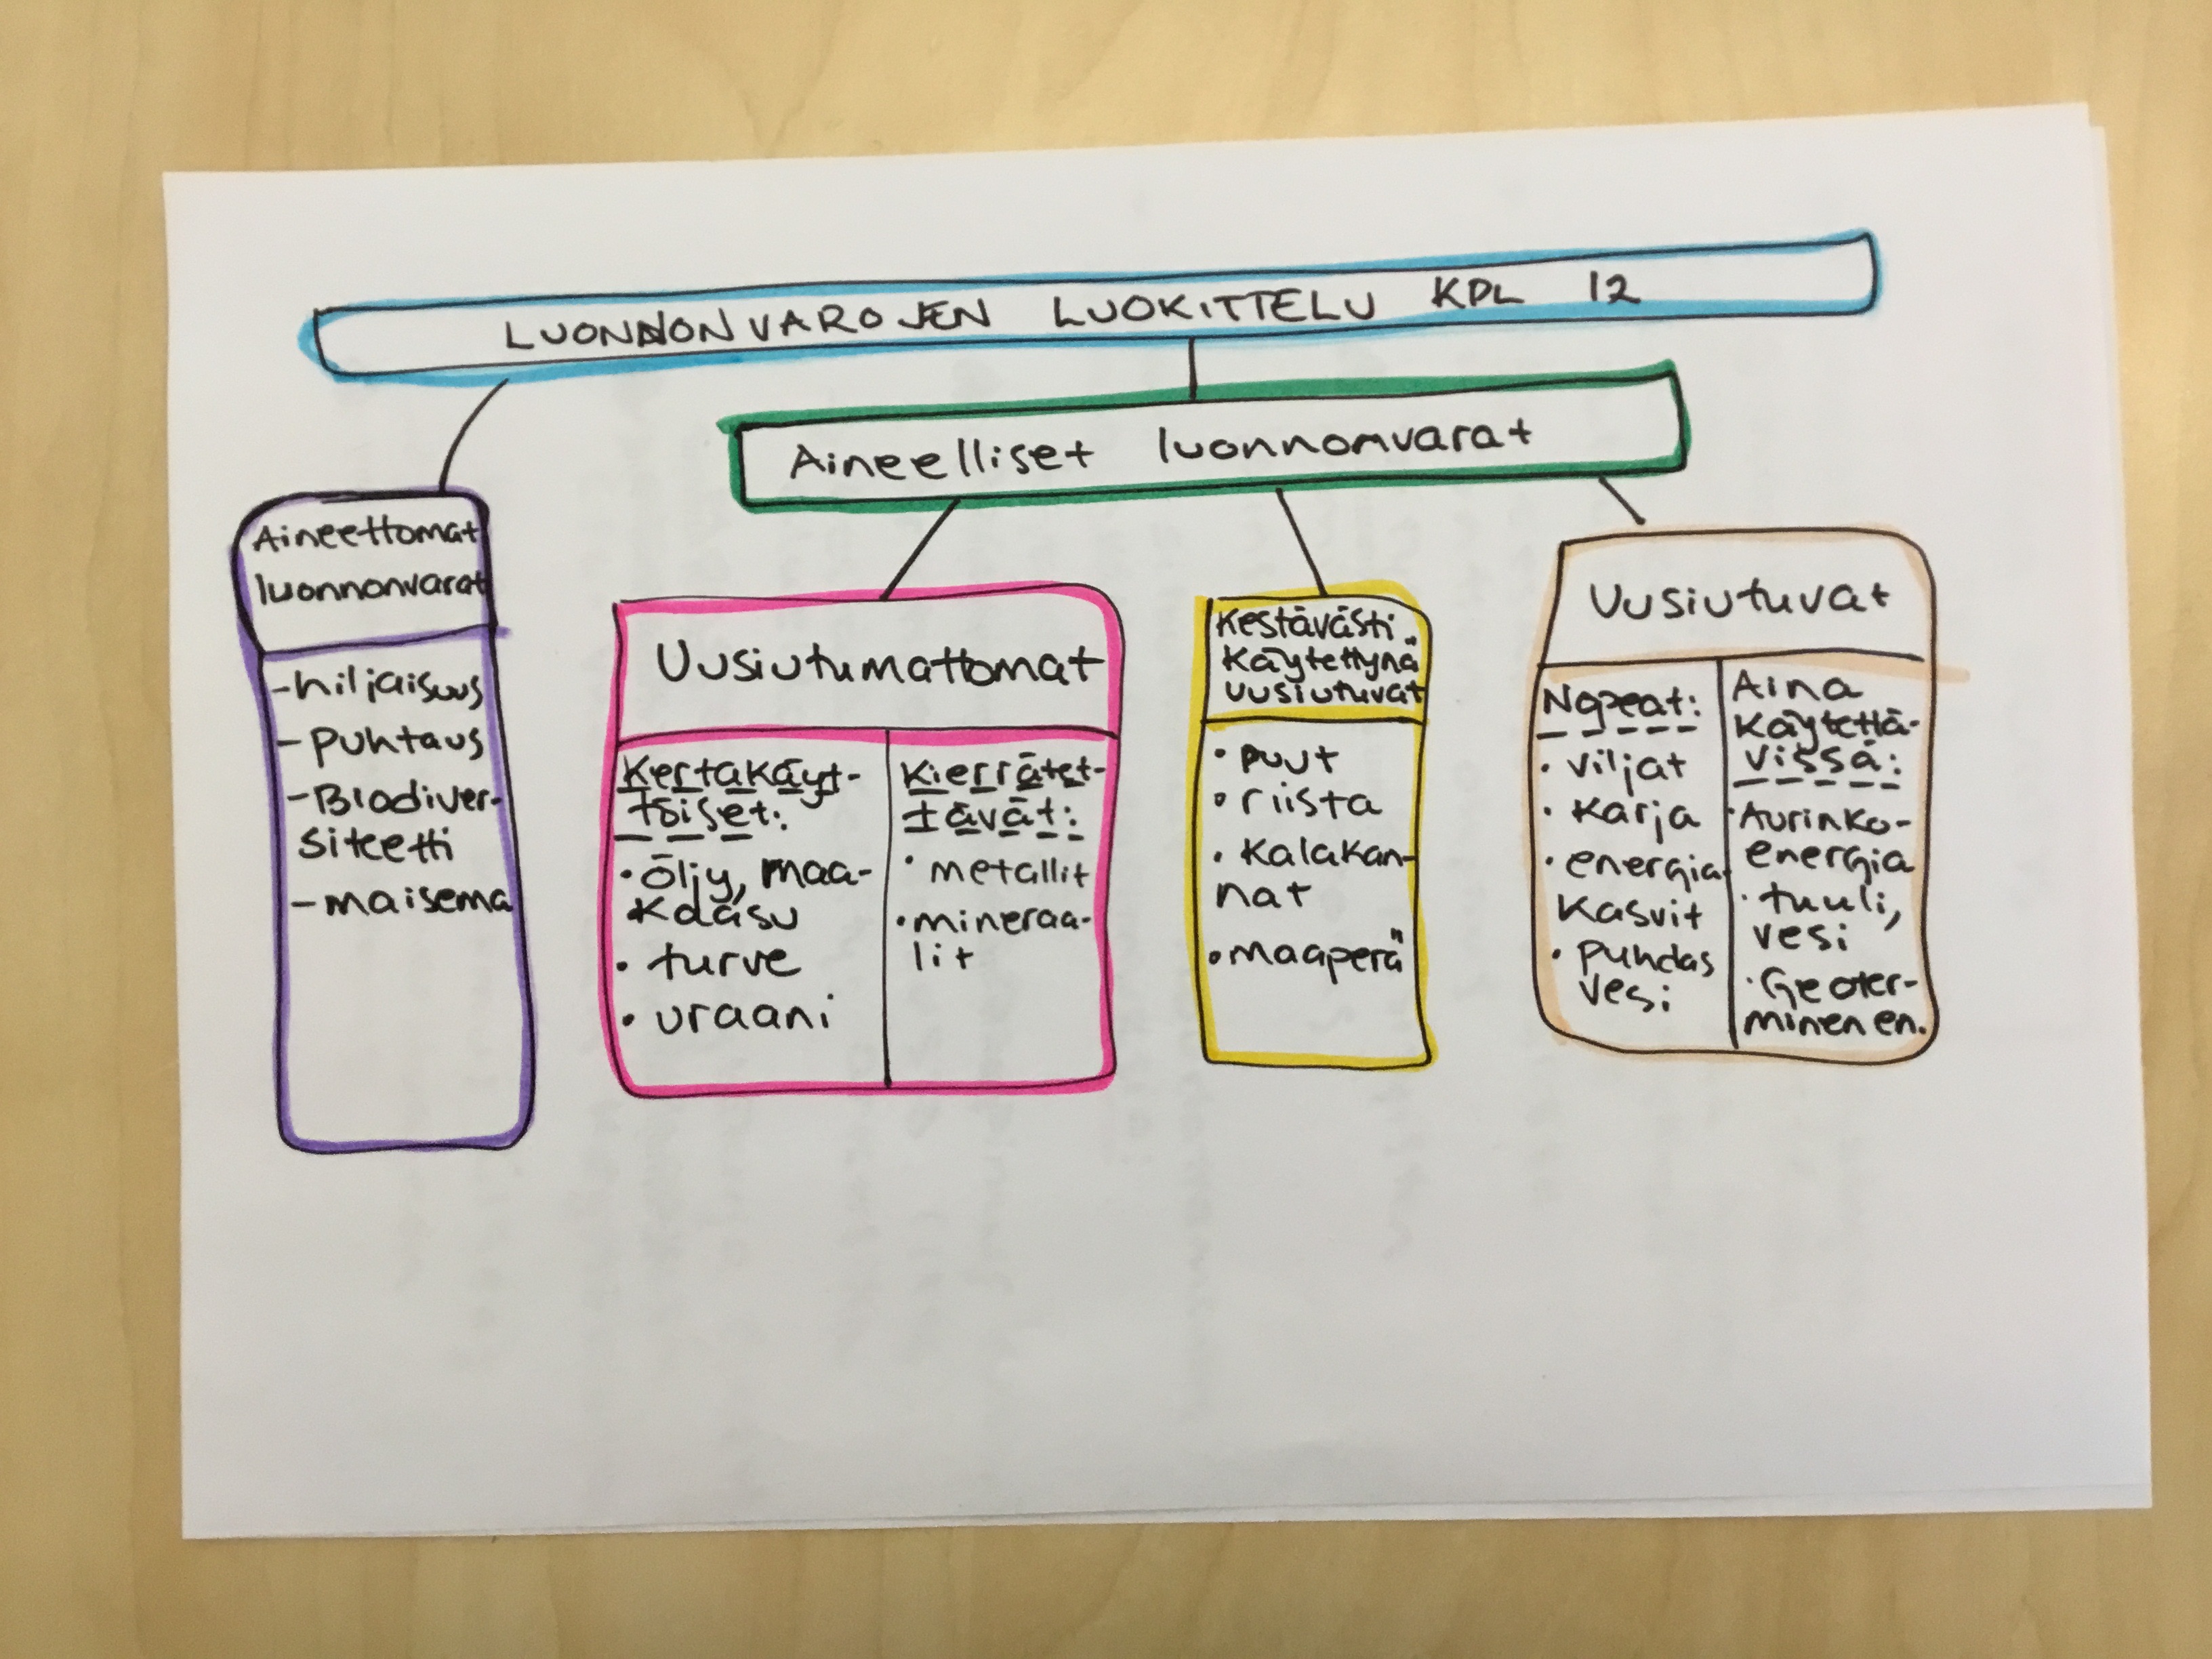 LUONNONVAROJEN LUOKITTELU KPL 12
Aineelliset luonnonvarat
Aineettomat
luonnonvarat
-hiljaisuus
- puhtaus
-Biodiver-
siteetti
- maisema
Uusiutumattomat
Kertakäyt-
töiset:
• öljy, maa-
kaasu
• turve
• uraani
Kierrätet-
tävät:
• metallit
• mineraa-
lit
Kestävästi
käytettynä
uusiutuvat
• puut
• riista
• kalakan-
nat
• maaperä
Uusiutuvat
Nopeat:
• viljat
• karja
• energia
kasvit
• puhdas
vesi
Aina
käytettä-
vissä:
• Aurinko-
energia
• tuuli,
vesi
• Geoter-
minen en.